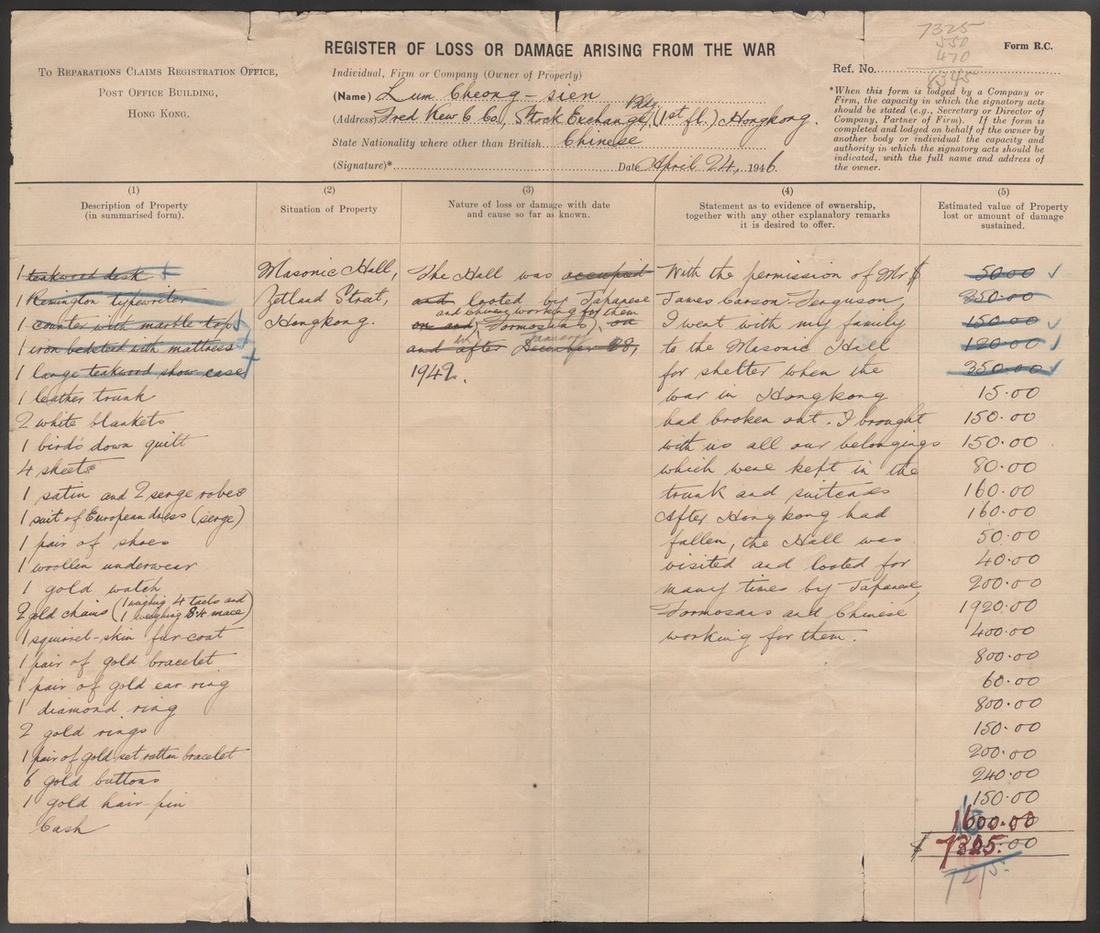 7325
550
470
8345
Form R.C.
REGISTER OF LOSS OR DAMAGE ARISING FROM THE WAR
To Reparations Claims Registration Office,
Post Office Building,
Hong Kong.
Individual, Firm or Company (Owner of Property)
(Name) Lum Cheong-sien
(Address) Fred Kew & Co., Stock Exchange Bldg. (1st fl.) Hongkong.
State Nationality where other than British. Chinese
(Signature)* Date April 24, 1946.
Ref. No.
*When this form is lodged by a Company or
Firm, the capacity in which the signatory acts
should be stated (e.g., Secretary or Director of
Company, Partner of Firm). If the form is
completed and lodged on behalf of the owner by
another body or individual the capacity and
authority in which the signatory acts should be
indicated, with the full name and address of
the owner.
(1)
Description of Property
(in summarised form).
1 teakwood desk
1 Remington typewriter
1 counter with marble top
1 iron bedsteed with mattress
1 large teakwood show-case
1 leather trunk
2 white blankets
1 bird's down quilt
4 sheets
1 satin and 2 serge robes
1 suit of European dress (serge)
1 pair of shoes
1 woollen underwear
1 gold watch
2 gold chains (1 weighing 4 taels and
1 weighing 8.4 mace)
1 squirrel-skin fur-coat
1 pair of gold bracelet
1 pair of gold ear-ring
1 diamond ring
2 gold rings
1 pair of gold-set rattan bracelet
6 gold buttons
1 gold hair-pin
Cash
(2)
Situation of Property
Masonic Hall,
Zetland Street,
Hongkong.
(3)
Nature of loss or damage with date
and cause so far as known.
The Hall was occupied
and looted by Japanese
and Chinese working for them
on and Formosans, on
and after December 28,
1942.
(4)
Statement as to evidence of ownership,
together with any other explanatory remarks
it is desired to offer.
With the permission of Mr
James Carson Ferguson,
I went with my family
to the Masonic Hall
for shelter when the
war in Hongkong
had broken out. I brought
with us all our belongings
which were kept in the
trunk and suitcases
After Hongkong had
fallen, the Hall was
visited and looted for
many times by Japanese,
Formosans and Chinese
working for them.
(5)
Estimated value of Property
lost or amount of damage
sustained.
$ 50.00
350.00
150.00
120.00
350.00
15.00
150.00
150.00
80.00
160.00
160.00
50.00
40.00
200.00
1920.00
400.00
800.00
60.00
800.00
150.00
200.00
240.00
150.00
1600.00
$ 7325.00